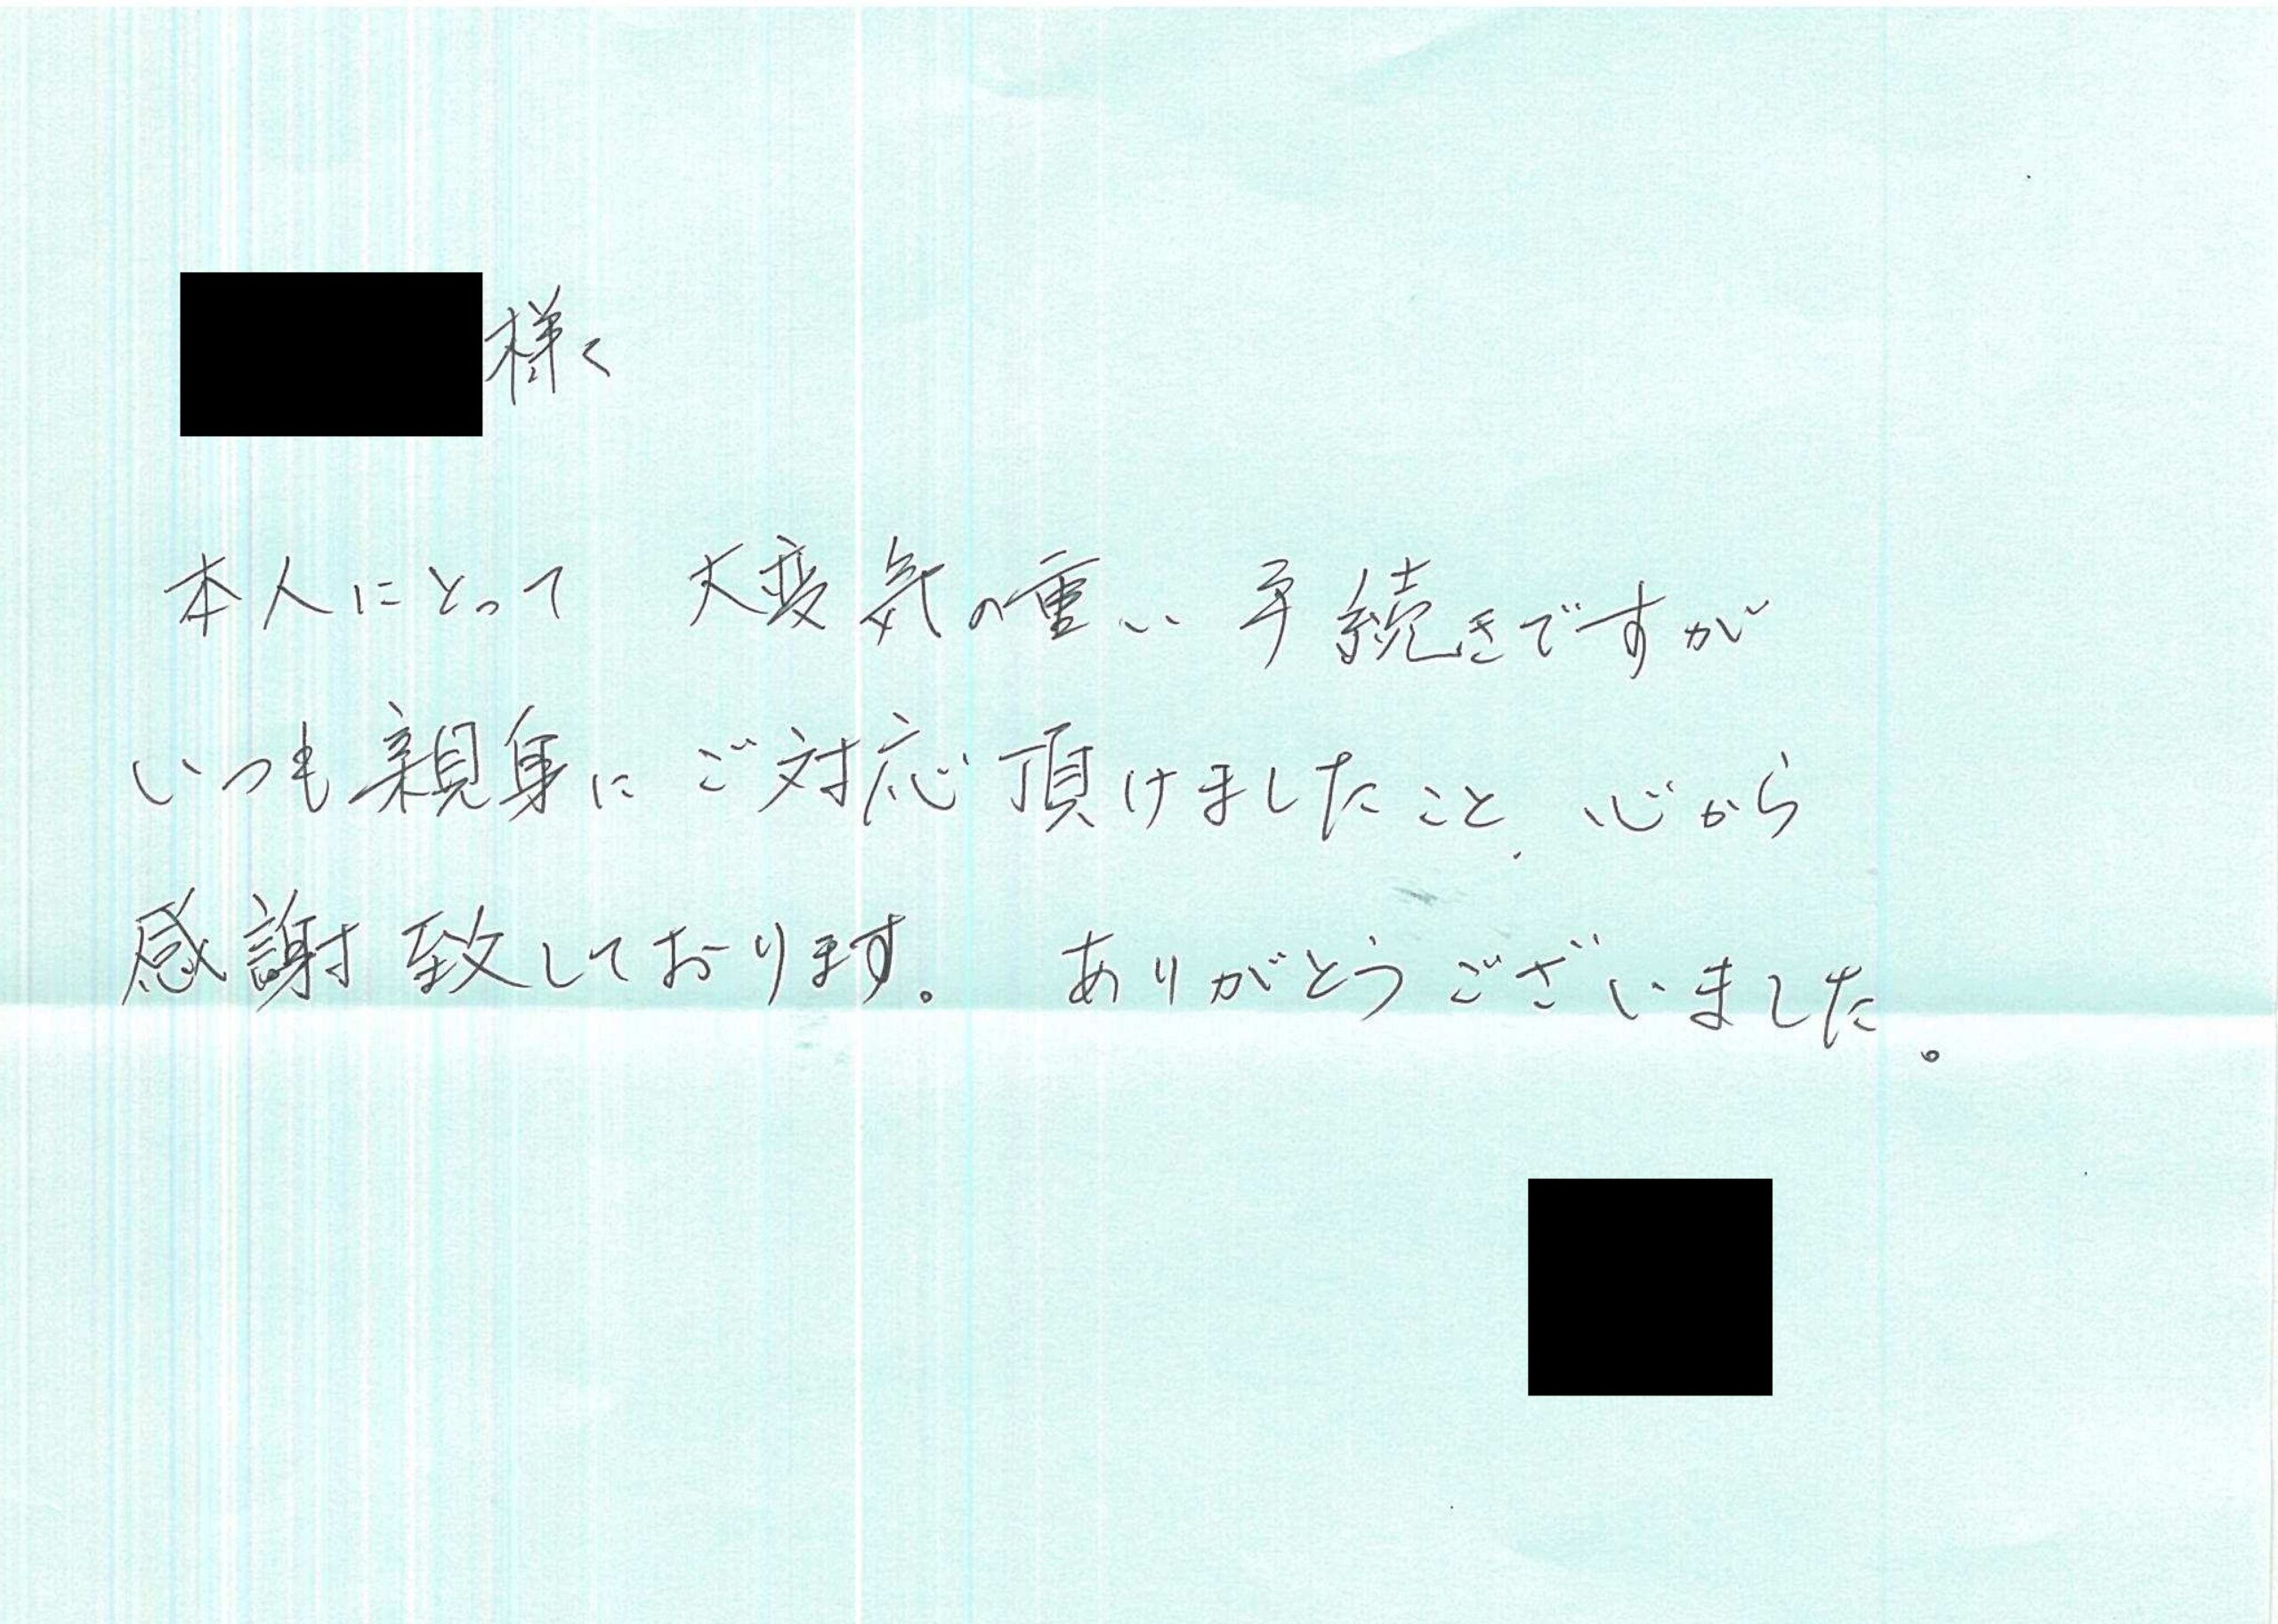 様へ
本人にとって 大変気の重い手続きですが
いつも親身にご対応頂けましたこと、心から
感謝致しております。 ありがとうございました。